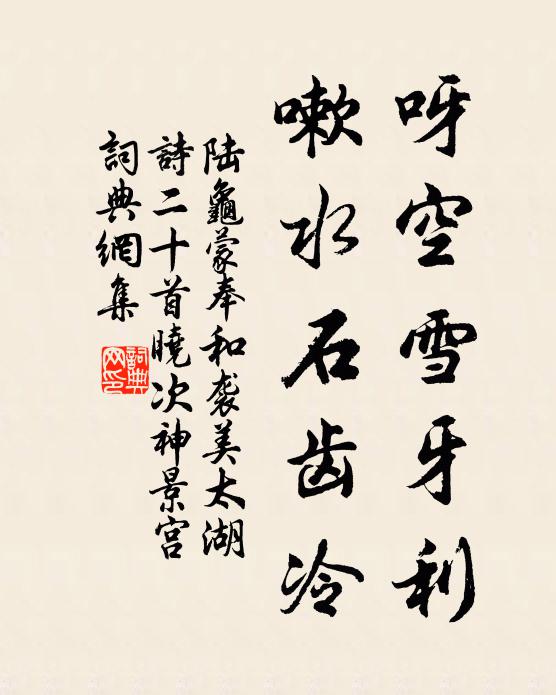 呀空雪牙利
嗽水石齿冷
陆龜蒙奉和袭美太湖
詩二十首曉次神景宫
詞典網集
詞典网印